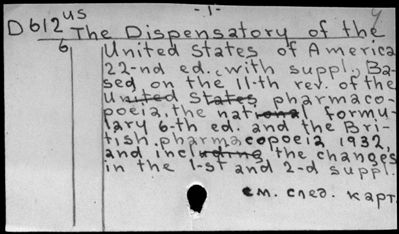 - 1 -
D 612 us The Dispensatory of the
6 United States of America
22-nd ed., with suppl., Ba-
sed on the 11-th rev. of the
United States pharmaco-
poeia, the national formu-
lary 6-th ed. and the Bri-
tish pharmacopoeia 1932,
and including the changes
in the 1-st and 2-d suppl.
см. след. карт.